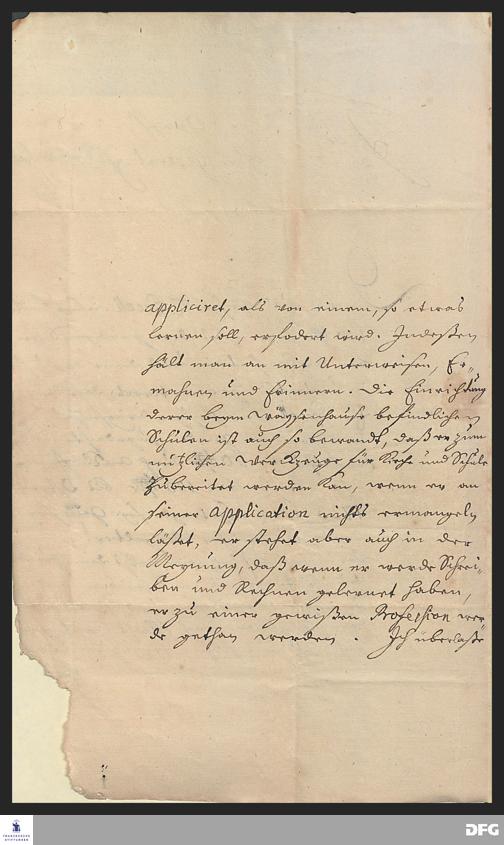 appliciret, als von einem, so etwas
lernen soll, erfodert wird. Indeßen
hält man an mit Unterweisen, Er-
mahnen und Erinnern. Die Einrichtung
derer beym Wäysenhause befindlichen
Schulen ist auch so bewandt, daß er zum
nützlichen Werckzeuge für Kirche und Schule
zubereitet werden kan, wenn er an
seiner Application nichts ermangeln
läßet, er stehet aber auch in der
Meynung, daß wenn er werde Schrei-
ben und Rechnen gelernet haben,
er zu einer gewißen Profession wer-
de gethan werden. Ich überlaße
FRANCKESCHE
STIFTUNGEN
DFG